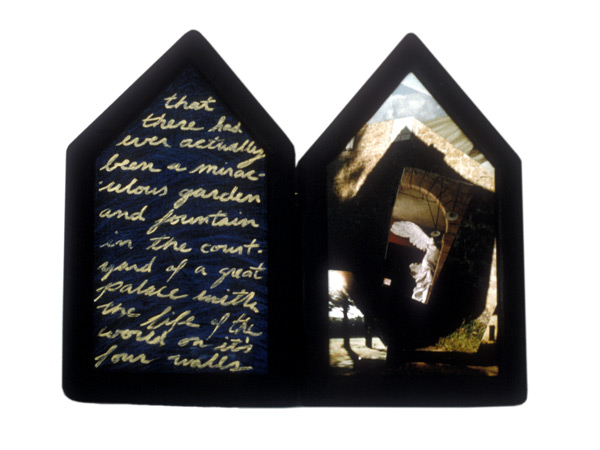 that
there had
ever actually
been a mirac-
ulous garden
and fountain
in the court-
yard of a great
palace with
the life of the
world on it's
four walls